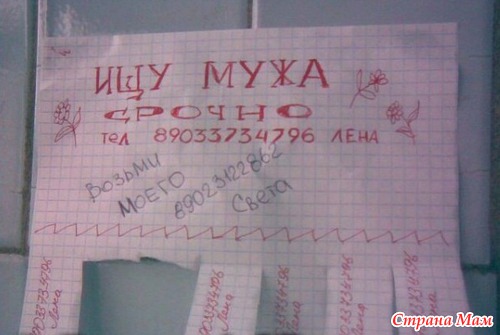 ИЩУ МУЖА
СРОЧНО
тел 89033734796 ЛЕНА
возьми
МОЕГО
89023122862
Света
89033734796
Лена
89033734796
Лена
89033734796
Лена
89033734796
Лена
89033734796
Лена
Страна Мам